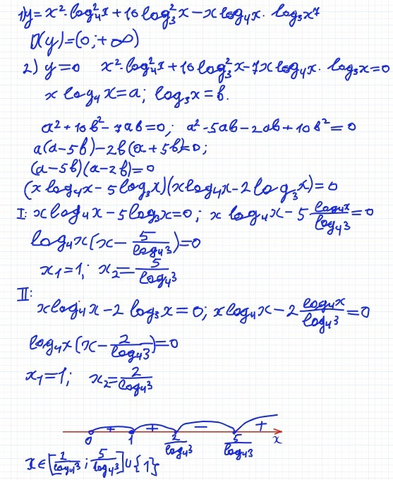 1) y = x²·log₄²x + 10 log₃²x − x log₄x · log₃x⁷
D(y) = (0; +∞)
2) y = 0 x²·log₄²x + 10 log₃²x − 7x log₄x · log₃x = 0
x log₄x = a; log₃x = b.
a² + 10b² − 7ab = 0; a² − 5ab − 2ab + 10b² = 0
a(a − 5b) − 2b(a + 5b) = 0;
(a − 5b)(a − 2b) = 0
(x log₄x − 5 log₃x)(x log₄x − 2 log₃x) = 0
I: x log₄x − 5 log₃x = 0; x log₄x − 5 log₄x/log₄3 = 0
log₄x (x − 5/log₄3) = 0
x₁ = 1; x₂ = 5/log₄3
II:
x log₄x − 2 log₃x = 0; x log₄x − 2 log₄x/log₄3 = 0
log₄x (x − 2/log₄3) = 0
x₁ = 1; x₂ = 2/log₄3
+ + − +
0 1 2/log₄3 5/log₄3 x
x ∈ [2/log₄3; 5/log₄3] ∪ {1}